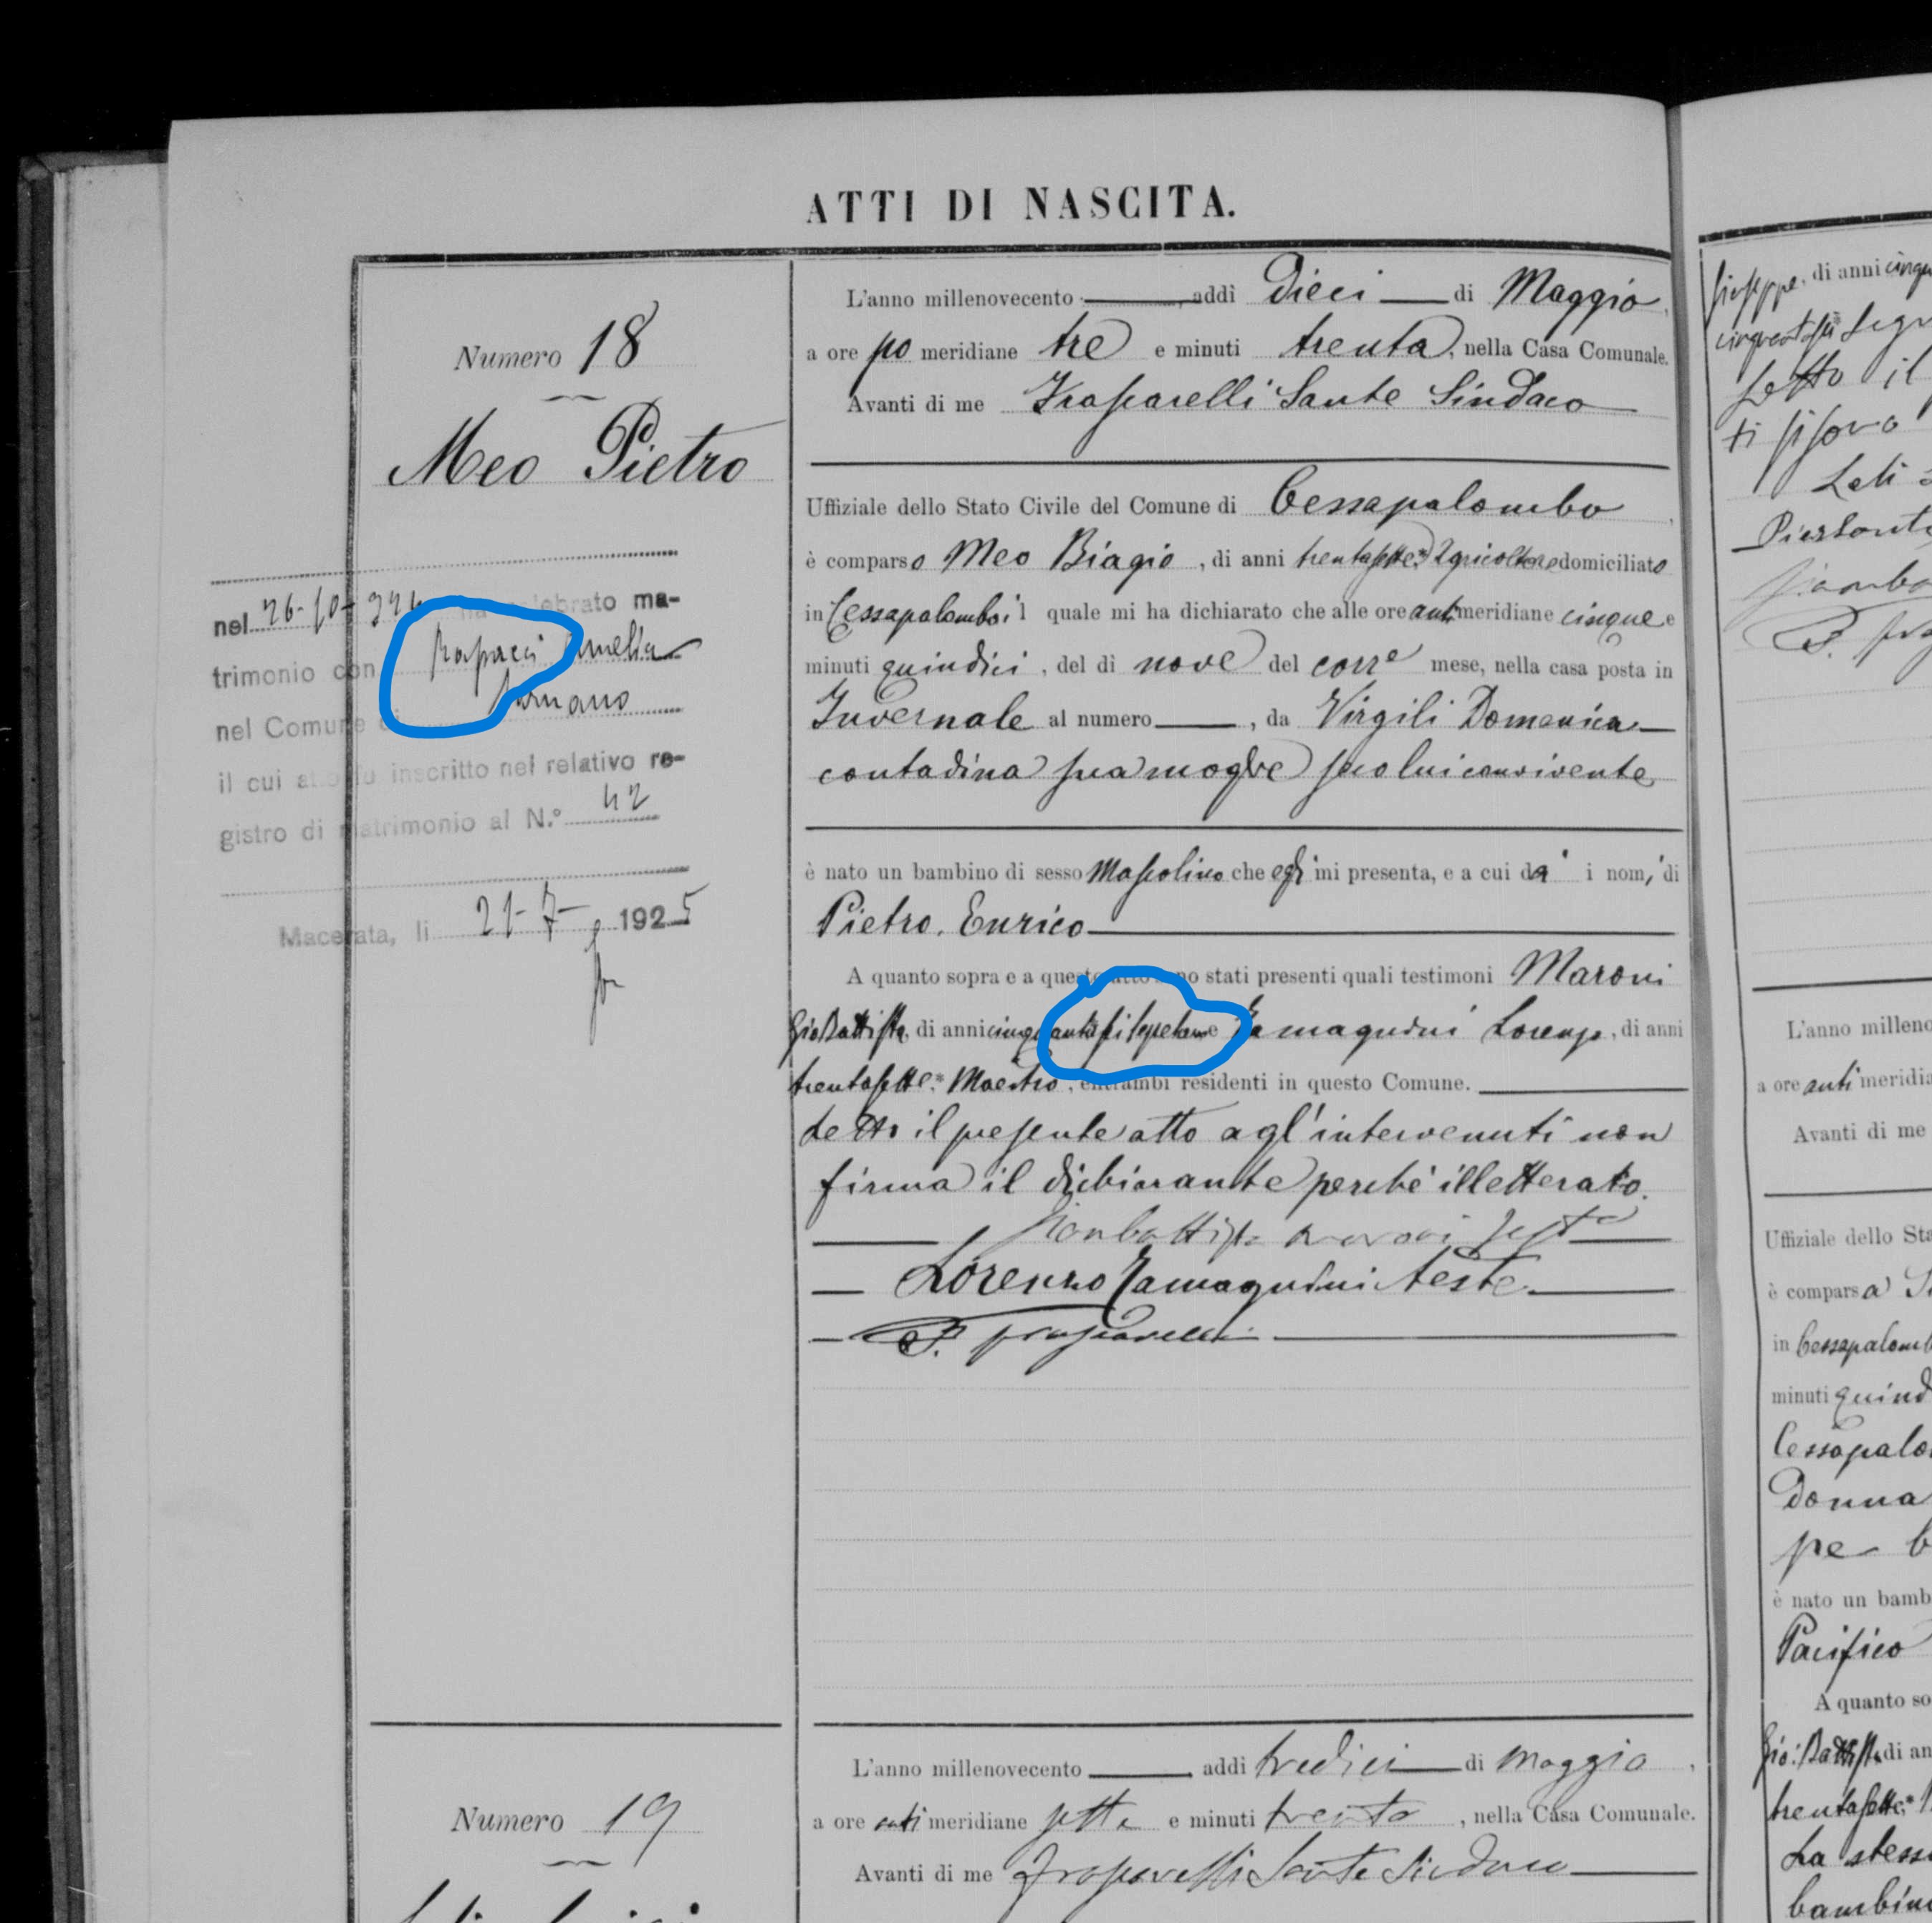 ATTI DI NASCITA.
Numero 18
Meo Pietro
nel 26-10-924 ha celebrato ma-
trimonio con Rapacci Amelia
nel Comune di Sarnano
il cui atto fu inscritto nel relativo re-
gistro di matrimonio al N.° 42
Macerata, li 21-7- 1925
L'anno millenovecento, addì Dieci di Maggio,
a ore po meridiane tre e minuti trenta, nella Casa Comunale.
Avanti di me Frascarelli Sante Sindaco
Uffiziale dello Stato Civile del Comune di Cessapalombo,
è comparso Meo Biagio, di anni trentasette Agricoltore domiciliato
in Cessapalombo il quale mi ha dichiarato che alle ore anti meridiane cinque e
minuti quindici, del dì nove del corre mese, nella casa posta in
Invernale al numero, da Virgili Domenica
contadina sua moglie seco lui convivente
è nato un bambino di sesso Mascolino che egli mi presenta, e a cui dà i nomi di
Pietro. Enrico
A quanto sopra e a questo atto sono stati presenti quali testimoni Maroni
Gio Battista, di anni cinquantasei e Tamagnini Lorenzo, di anni
trentasette. Maestro, entrambi residenti in questo Comune.
Letto il presente atto agl'intervenuti non
firma il dichiarante perchè illetterato.
Gianbattista Maroni teste
Lorenzo Tamagnini teste
S. Frascarelli
Numero 19
L'anno millenovecento, addì tredici di Maggio,
a ore anti meridiane sette e minuti trenta, nella Casa Comunale.
Avanti di me Frascarelli Sante Sindaco
Giuseppe, di anni
Letto il
L'anno milleno
a ore anti meridia
Avanti di me
Uffiziale dello Sta
è comparsa
in Cessapalomb
minuti quind
Cessapalo
Donna
pe
è nato un bamb
Pacifico
A quanto so
Gio: Battista di an
trentasette.
La stess
bambin